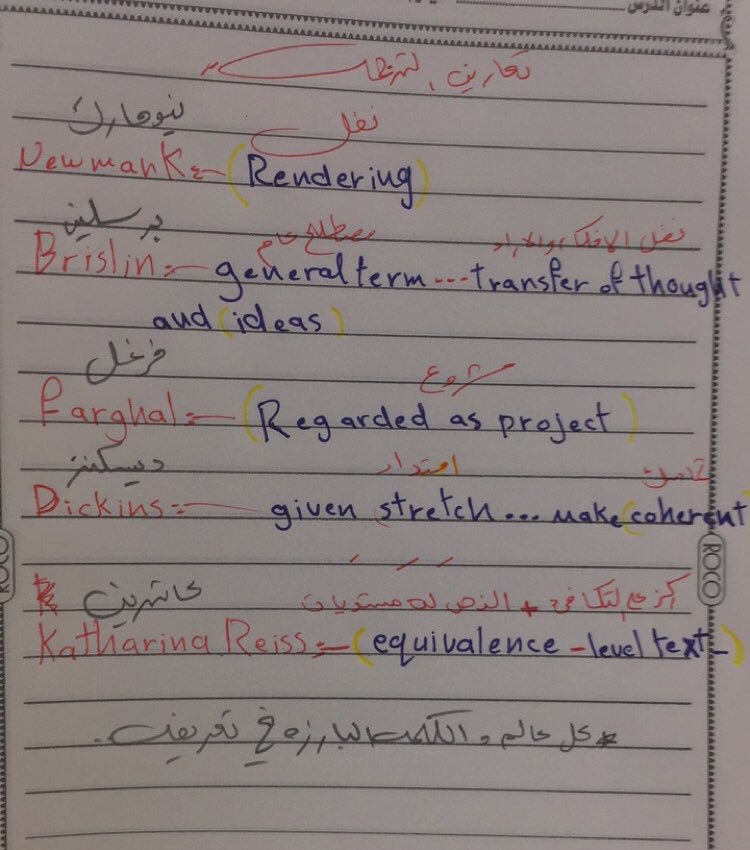 عنوان الدرس
نيومارك نقل
Newmark:- (Rendering)
برسلين مصطلح عام نقل الافكار والاراء
Brislin:- general term --- transfer of thought
and (ideas)
فرغل مشروع
Farghal:- (Regarded as project)
ديسكنز امتداد
Dickins:- given stretch... make (coherent
كاثرين النص له مستويات
Katharina Reiss:- (equivalence - level text -)
* كل عالم و الكلمة البارزه في تعريفه.
ROCO